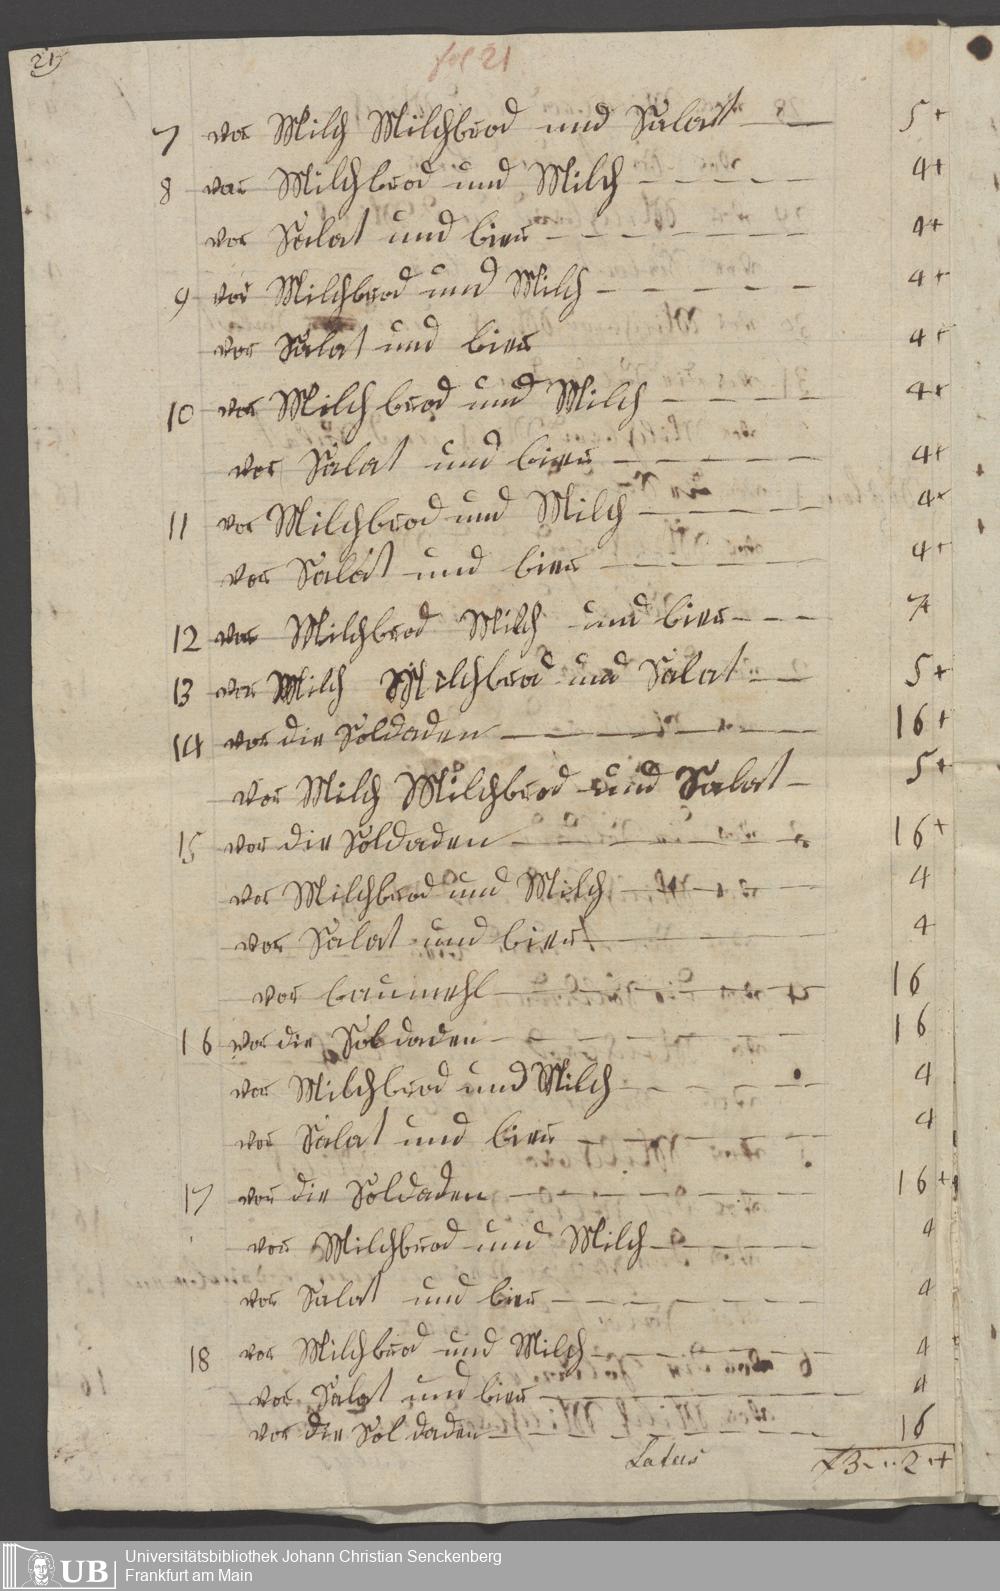 21
fol 21
7 vor Milch Milchbrod und Salat — — 5 +
8 vor Milchbrod und Milch - - - - - 4 +
vor Salat und bier - - - - - - 4 +
9 vor Milchbrod und Milch - - - - - 4 +
vor Salat und bier 4 +
10 vor Milchbrod und Milch - - - - - 4 +
vor Salat und bier - - - - - 4 +
11 vor Milchbrod und Milch - - - - - 4 +
vor Salat und bier - - - - - 4 +
12 vor Milchbrod Milch und bier - - - 7 +
13 vor Milch Milchbrod und Salat - - 5 +
14 vor die Soldaden - - - - - - 16 +
vor Milch Milchbrod und Salat - 5 +
15 vor die Soldaden - - - - - - 16 +
vor Milchbrod und Milch - - - - 4
vor Salat und bier - - - - - 4
vor baumehl - - - - - - 16
16 vor die Soldaden - - - - - - 16
vor Milchbrod und Milch - - - - 4
vor Salat und bier - - - - - 4
17 vor die Soldaden - - - - - - 16 +
vor Milchbrod und Milch - - - - 4
vor Salat und bier - - - - - - 4
18 vor Milchbrod und Milch - - - - 4
vor Salat und bier - - - - - 4
vor die Soldaden - - - - - - 16
Latus f 3 - .. 2 .. +
UB Universitätsbibliothek Johann Christian Senckenberg
Frankfurt am Main